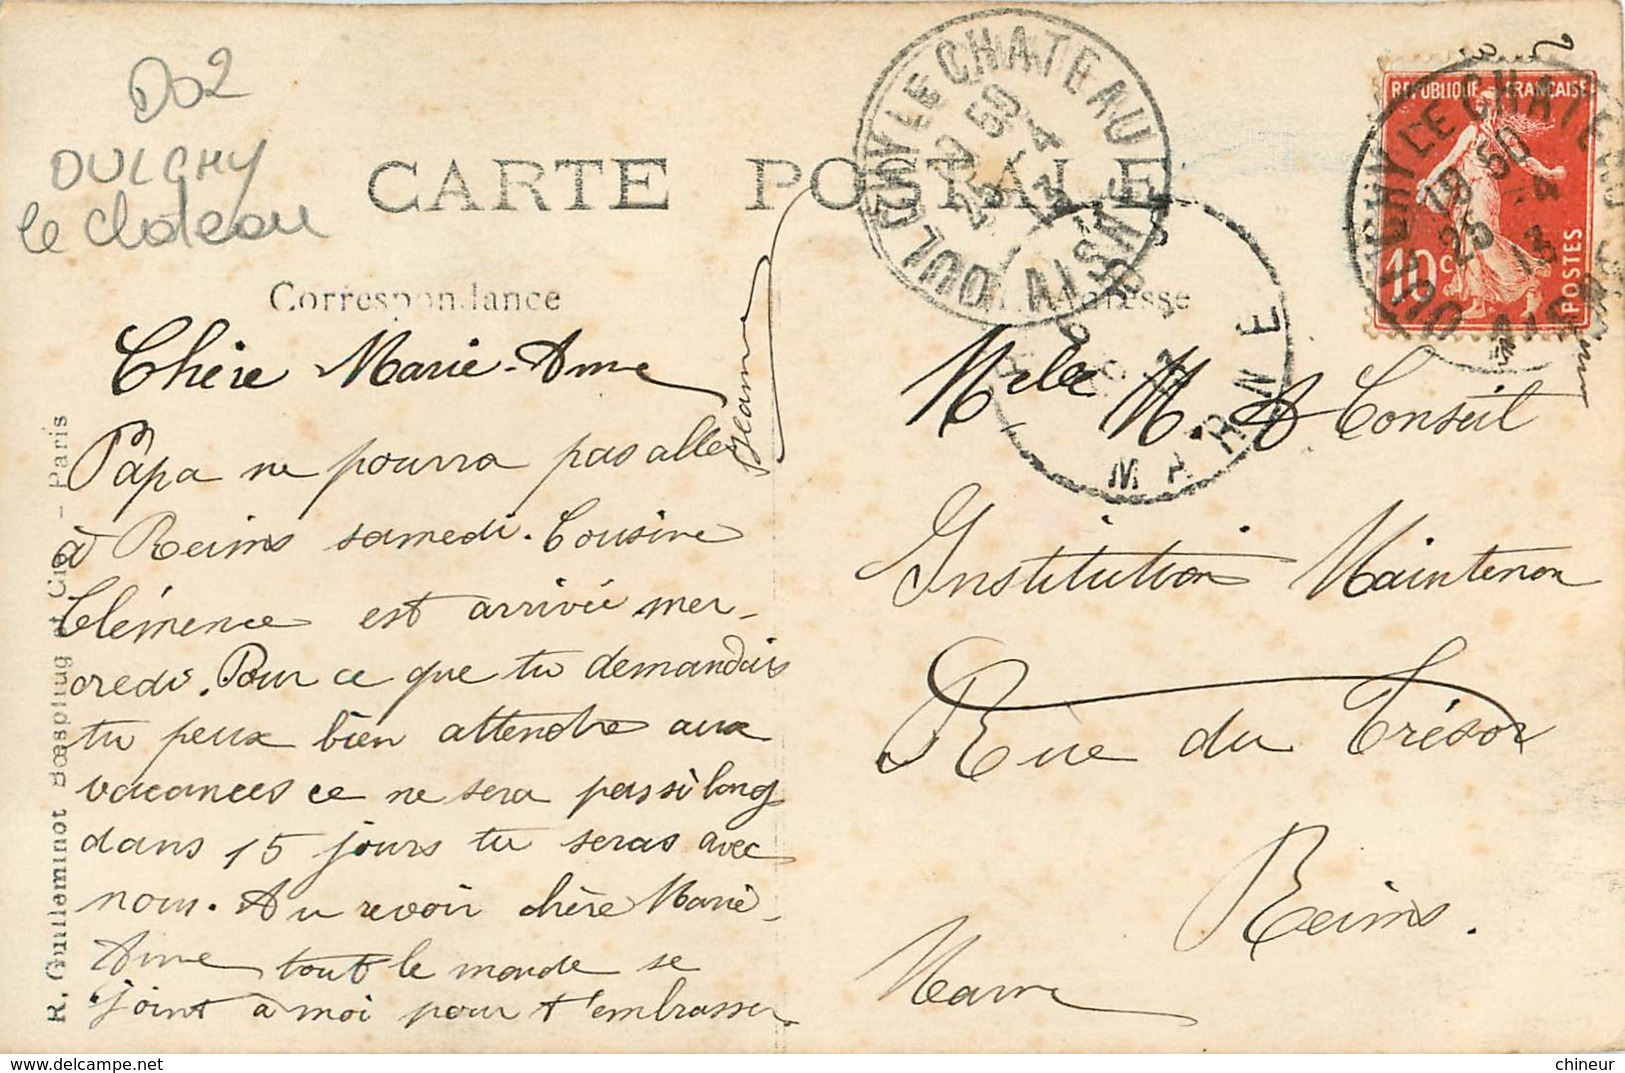 D02
OULCHY
le Chateau
CARTE POSTALE
Correspondance
Adresse
OULCHY LE CHATEAU
19 50
25 -4
13
AISNE
MARNE
REPUBLIQUE FRANÇAISE
10c
POSTES
Chère Marie-Anne
Papa ne pourra pas aller
à Reims samedi. Cousine
Clémence est arrivée mer-
credi. Pour ce que tu demandais
tu peux bien attendre aux
vacances ce ne sera pas si long
dans 15 jours tu seras avec
nous. Au revoir chère Marie-
Anne tout le monde se
joint à moi pour t'embrasser.
Jeanne
Melle M. A Conseil
Institution Maintenon
Rue du Trésor
Reims.
Marne
R. Guilleminot Bœspflug et Cie - Paris
chineur